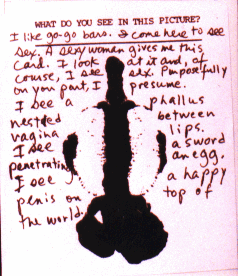 WHAT DO YOU SEE IN THIS PICTURE?
I like go-go bars. I come here to see
sex. A sexy woman gives me this
card. I look at it and, of
course, I see sex. Purposefully
on your part, I presume.
I see a phallus
nestled between
vagina lips.
I see a sword
penetrating an egg.
I see a happy
penis on top of
the world.